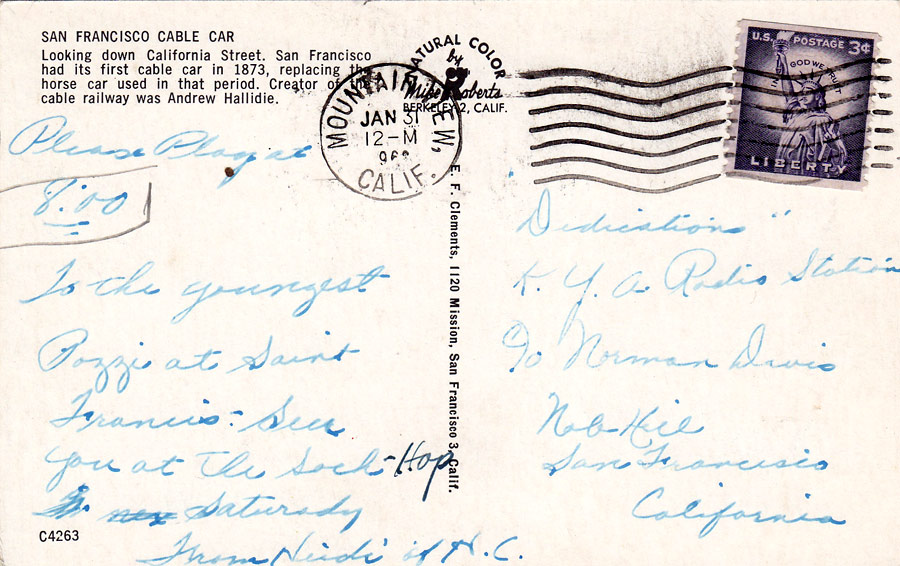 SAN FRANCISCO CABLE CAR
Looking down California Street. San Francisco
had its first cable car in 1873, replacing the
horse car used in that period. Creator of the
cable railway was Andrew Hallidie.
NATURAL COLOR
by
Mike Roberts
BERKELEY 2, CALIF.
MOUNTAIN VIEW,
JAN 31
12-M
CALIF.
U.S. POSTAGE 3¢
IN GOD WE TRUST
LIBERTY
Please Play at
8:00
To the youngest
Pozzi at Saint
Francis- See
you at the Sock-Hop
Saturady
From Heidi of H.C.
E. F. Clements, 1120 Mission, San Francisco 3, Calif.
Dedications"
K. Y. A. Radio Station
c/o Norman Davis
Nob Hill
San Francisco
California
C4263